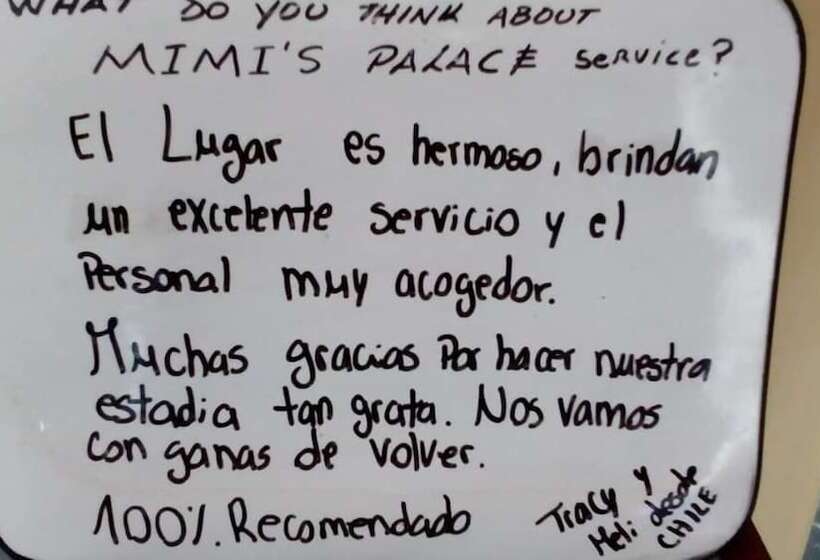 WHAT DO YOU THINK ABOUT
MIMI'S PALACE service?
El Lugar es hermoso, brindan
un excelente servicio y el
Personal muy acogedor.
Muchas gracias Por hacer nuestra
estadia tan grata. Nos vamos
con ganas de volver.
100%. Recomendado
Tracy y
Meli desde
CHILE